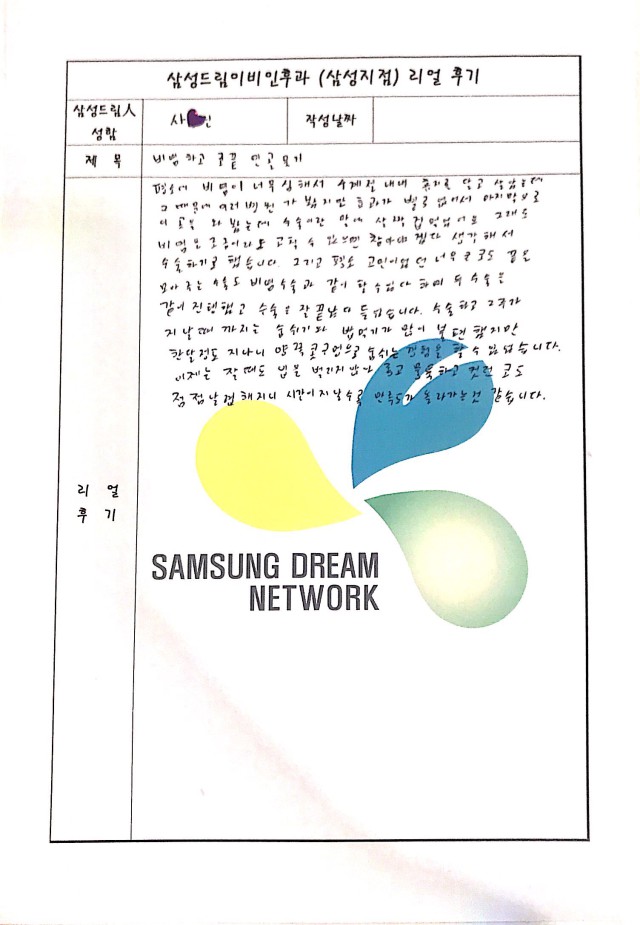 삼성드림이비인후과 (삼성지점) 리얼 후기
삼성드림人
성함
사 인
작성날짜
제 목
비염하고 코끝 연골 묶기
평소에 비염이 너무 심해서 사계절 내내 휴지를 달고 살았는데
그 때문에 여러 병원 가 봤지만 효과가 별로 없어서 마지막으로
이 곳을 와 봤는데 수술이란 말에 살짝 겁 먹었어요 그래도
비염 코 고칠 수 있으면 참아야 겠다 생각해서
수술하기로 했습니다. 그리고 평소 고민이었던 너무 큰 코도 끝을
모아 주는 수술도 비염수술과 같이 할 수 있다 하여 두 수술을
같이 진행했고 수술은 잘 끝났습니다. 수술하고 2주가
지날 때 까지는 숨쉬기와 밥먹기가 많이 불편 했지만
한달정도 지나니 양쪽 콧구멍으로 숨쉬는 경험을 할 수 있었습니다.
이제는 잘 때도 입을 벌리지 않고 뭉툭하고 컸던 코도
점점 날렵해지니 시간이 지날수록 만족도가 올라가는 것 같습니다.
리 얼
후 기
SAMSUNG DREAM
NETWORK